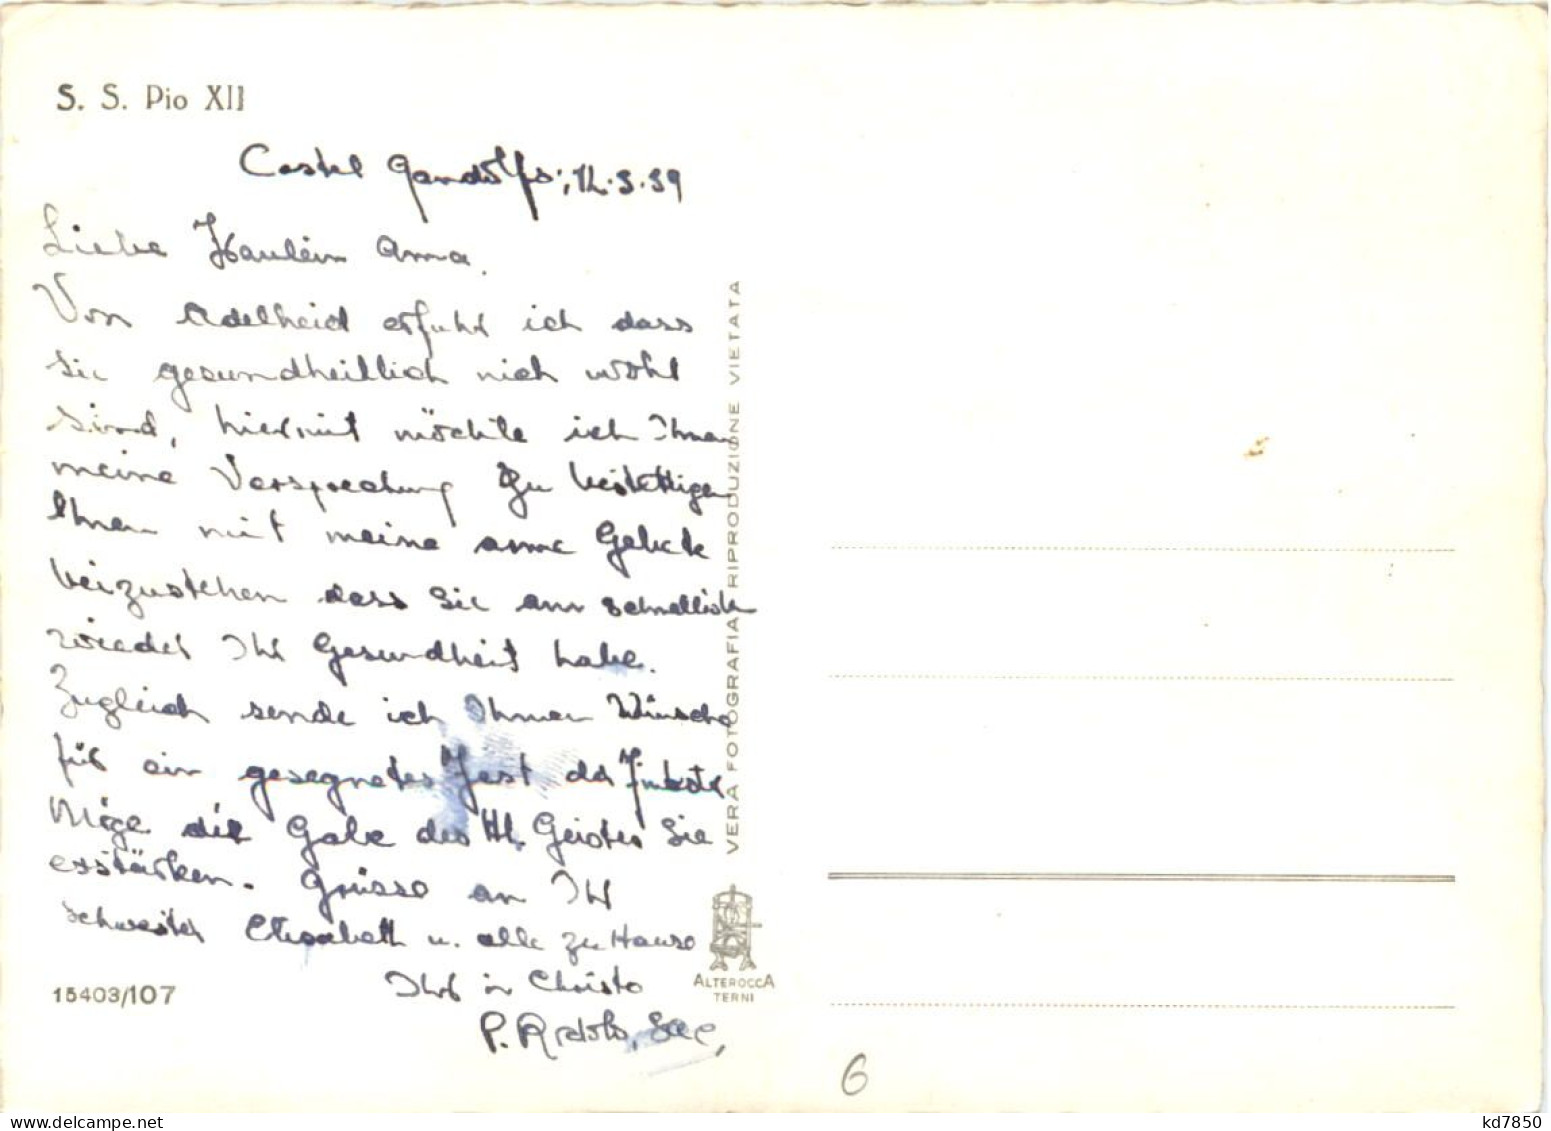 S. S. Pio XII
Castel Gandolfo, 12.5.59
Liebe Fräulein Anna.
Von Adelheid erfuhr ich dass
Sie gesundheitlich nich wohl
sind, hiermit möchte ich Ihnen
meine Versprechung zu bestettigen
Ihnen mit meine arme Gebete
beizustehen dass Sie am schnellich
wieder Ihr Gesundheit habe.
Zugleich sende ich Ihnen Wünsche
für ein gesegnetes Fest der
Möge die Gabe des Hl. Geistes Sie
erstärken. Grüsse an Ihr
Schwester Elisabeth u. alle zu Hause
Ihr in Christo
P.
15403/107
VERA FOTOGRAFIA RIPRODUZIONE VIETATA
ALTEROCCA
TERNI
6
kd7850